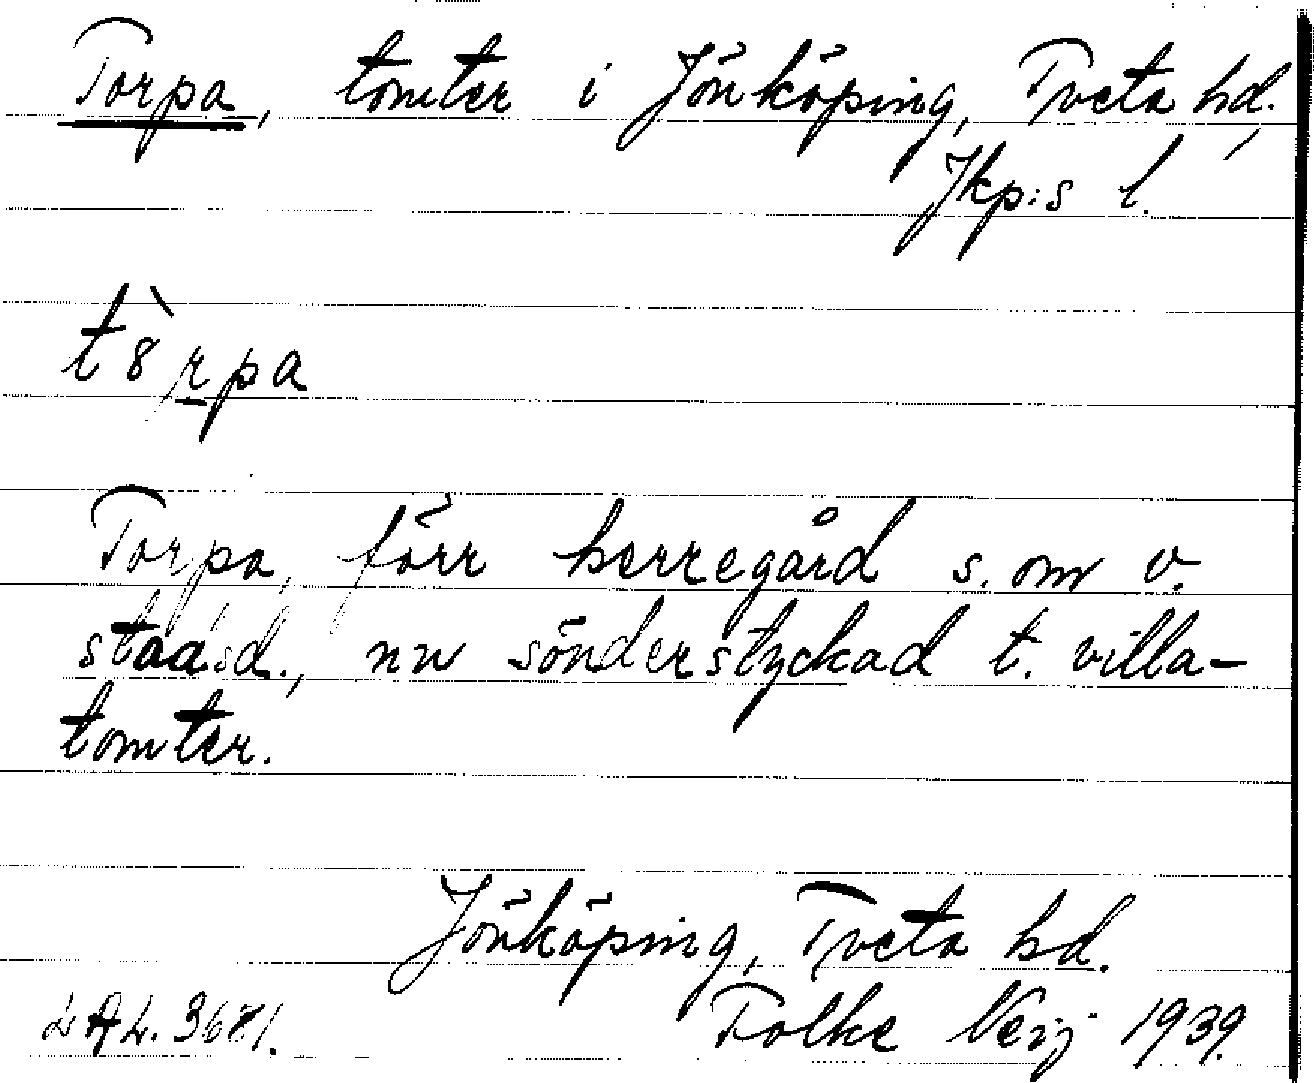 Torpa, tomter i Jönköping, Tveta hd.
Jkp:s l.
t8̀rpa
Torpa, förr herregård s. om v.
staden, nu sönderstyckad t. villa-
tomter.
Jönköping, Tveta hd.
LAL. 3681. Folke 1939.